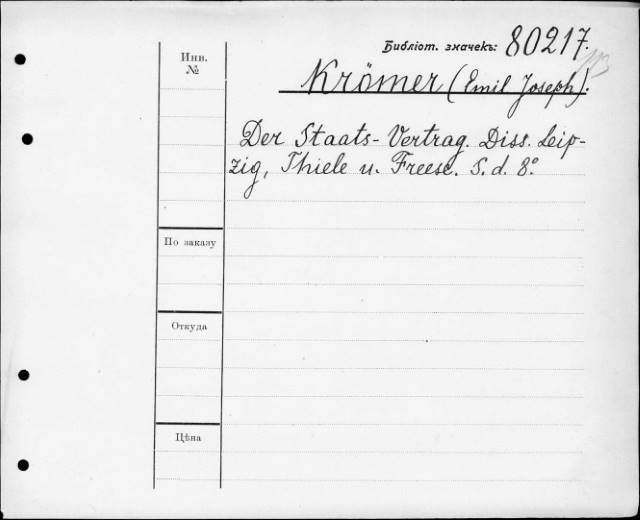 Библіот. значекъ: 80217.
Инв.
№
Krömer (Emil Joseph).
Der Staats-Vertrag. Diss. Leip-
zig, Thiele u. Freese. S. d. 8°
По заказу
Откуда
Цѣна